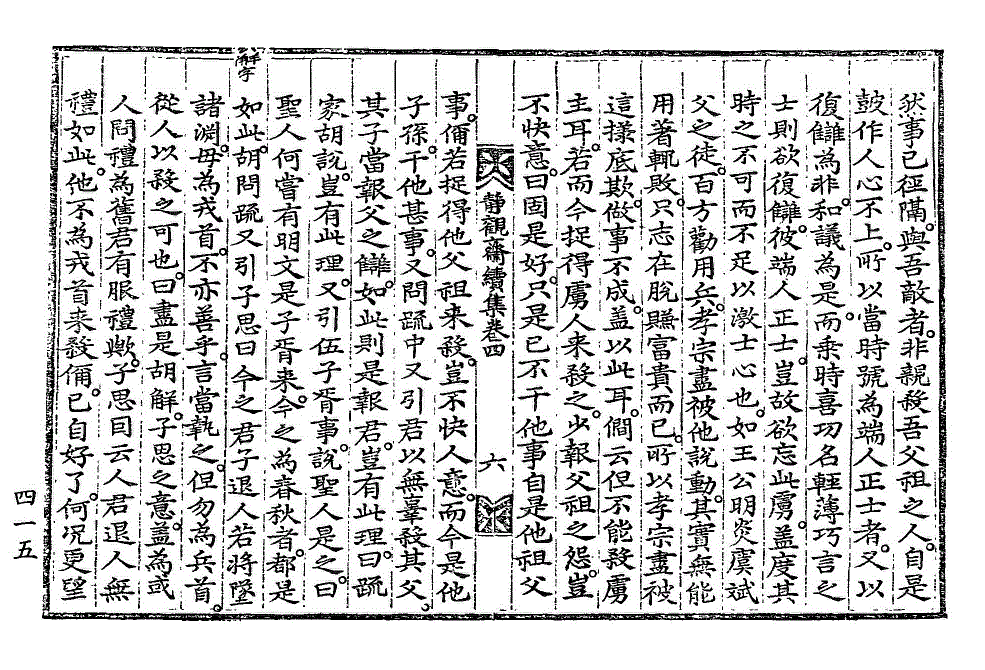 然事已徑隔。與吾敵者。非親殺吾父祖之人。自是
鼓作人心不上。所以當時號為端人正士者。又以
復讎為非。和議為是。而乘時喜功名輕薄巧言之
士則欲復讎。彼端人正士。豈故欲忘此虜。盖度其
時之不可而不足以激士心也。如王公明炎虞斌
父之徒。百方勸用兵。孝宗盡被他說動。其實無能
用著輒敗。只志在脫賺富貴而已。所以孝宗盡被
這㨾底欺。做事不成。盖以此耳。僩云但不能殺虜
主耳。若而今捉得虜人来殺之。少報父祖之怨。豈
不快意。曰固是好。只是已不干他事。自是他祖父
靜觀齋續集卷四
六
事。你若捉得他父祖来殺。豈不快人意。而今是他
子孫。干他甚事。又問疏中又引君以無辜殺其父。
其子當報父之讎。如此則是報君。豈有此理。曰疏
家胡說。豈有此理。又引伍子胥事。說聖人是之。曰
聖人何嘗有明文是子胥来。今之為春秋者。都是
解字
如此。胡問疏又引子思曰今之君子退人若將墜
諸淵。毋為戎首。不亦善乎。言當執之。但勿為兵首。
從人以殺之可也。曰盡是胡解。子思之意。盖為或
人問禮為舊君有服禮歟。子思回云人君退人無
禮如此。他不為戎首来殺你。已自好了。何况更望
四一五